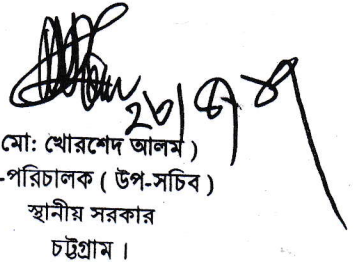 মো: খোরশেদ আলম )
-পরিচালক ( উপ-সচিব )
স্থানীয় সরকার
চট্টগ্রাম ।